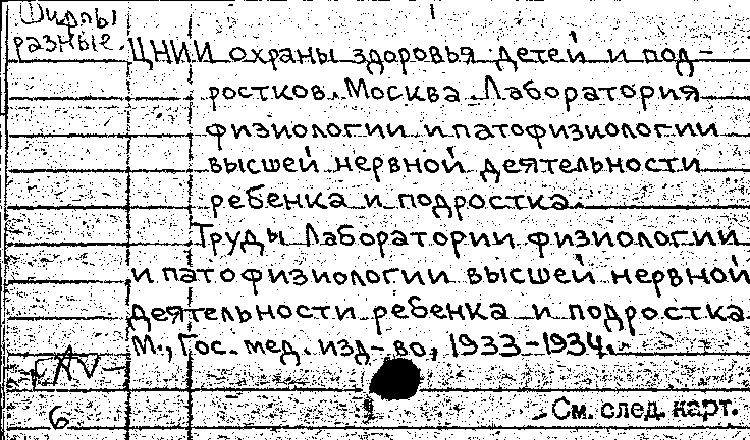 Шифры
разные.
ЦНИИ охраны здоровья детей и под-
ростков. Москва. Лаборатория
физиологии и патофизиологии
высшей нервной деятельности
ребенка и подростка.
Труды Лаборатории физиологии
и патофизиологии высшей нервной
деятельности ребенка и подростка
М., Гос. мед. изд-во, 1933-1934.
6
См. след. карт.